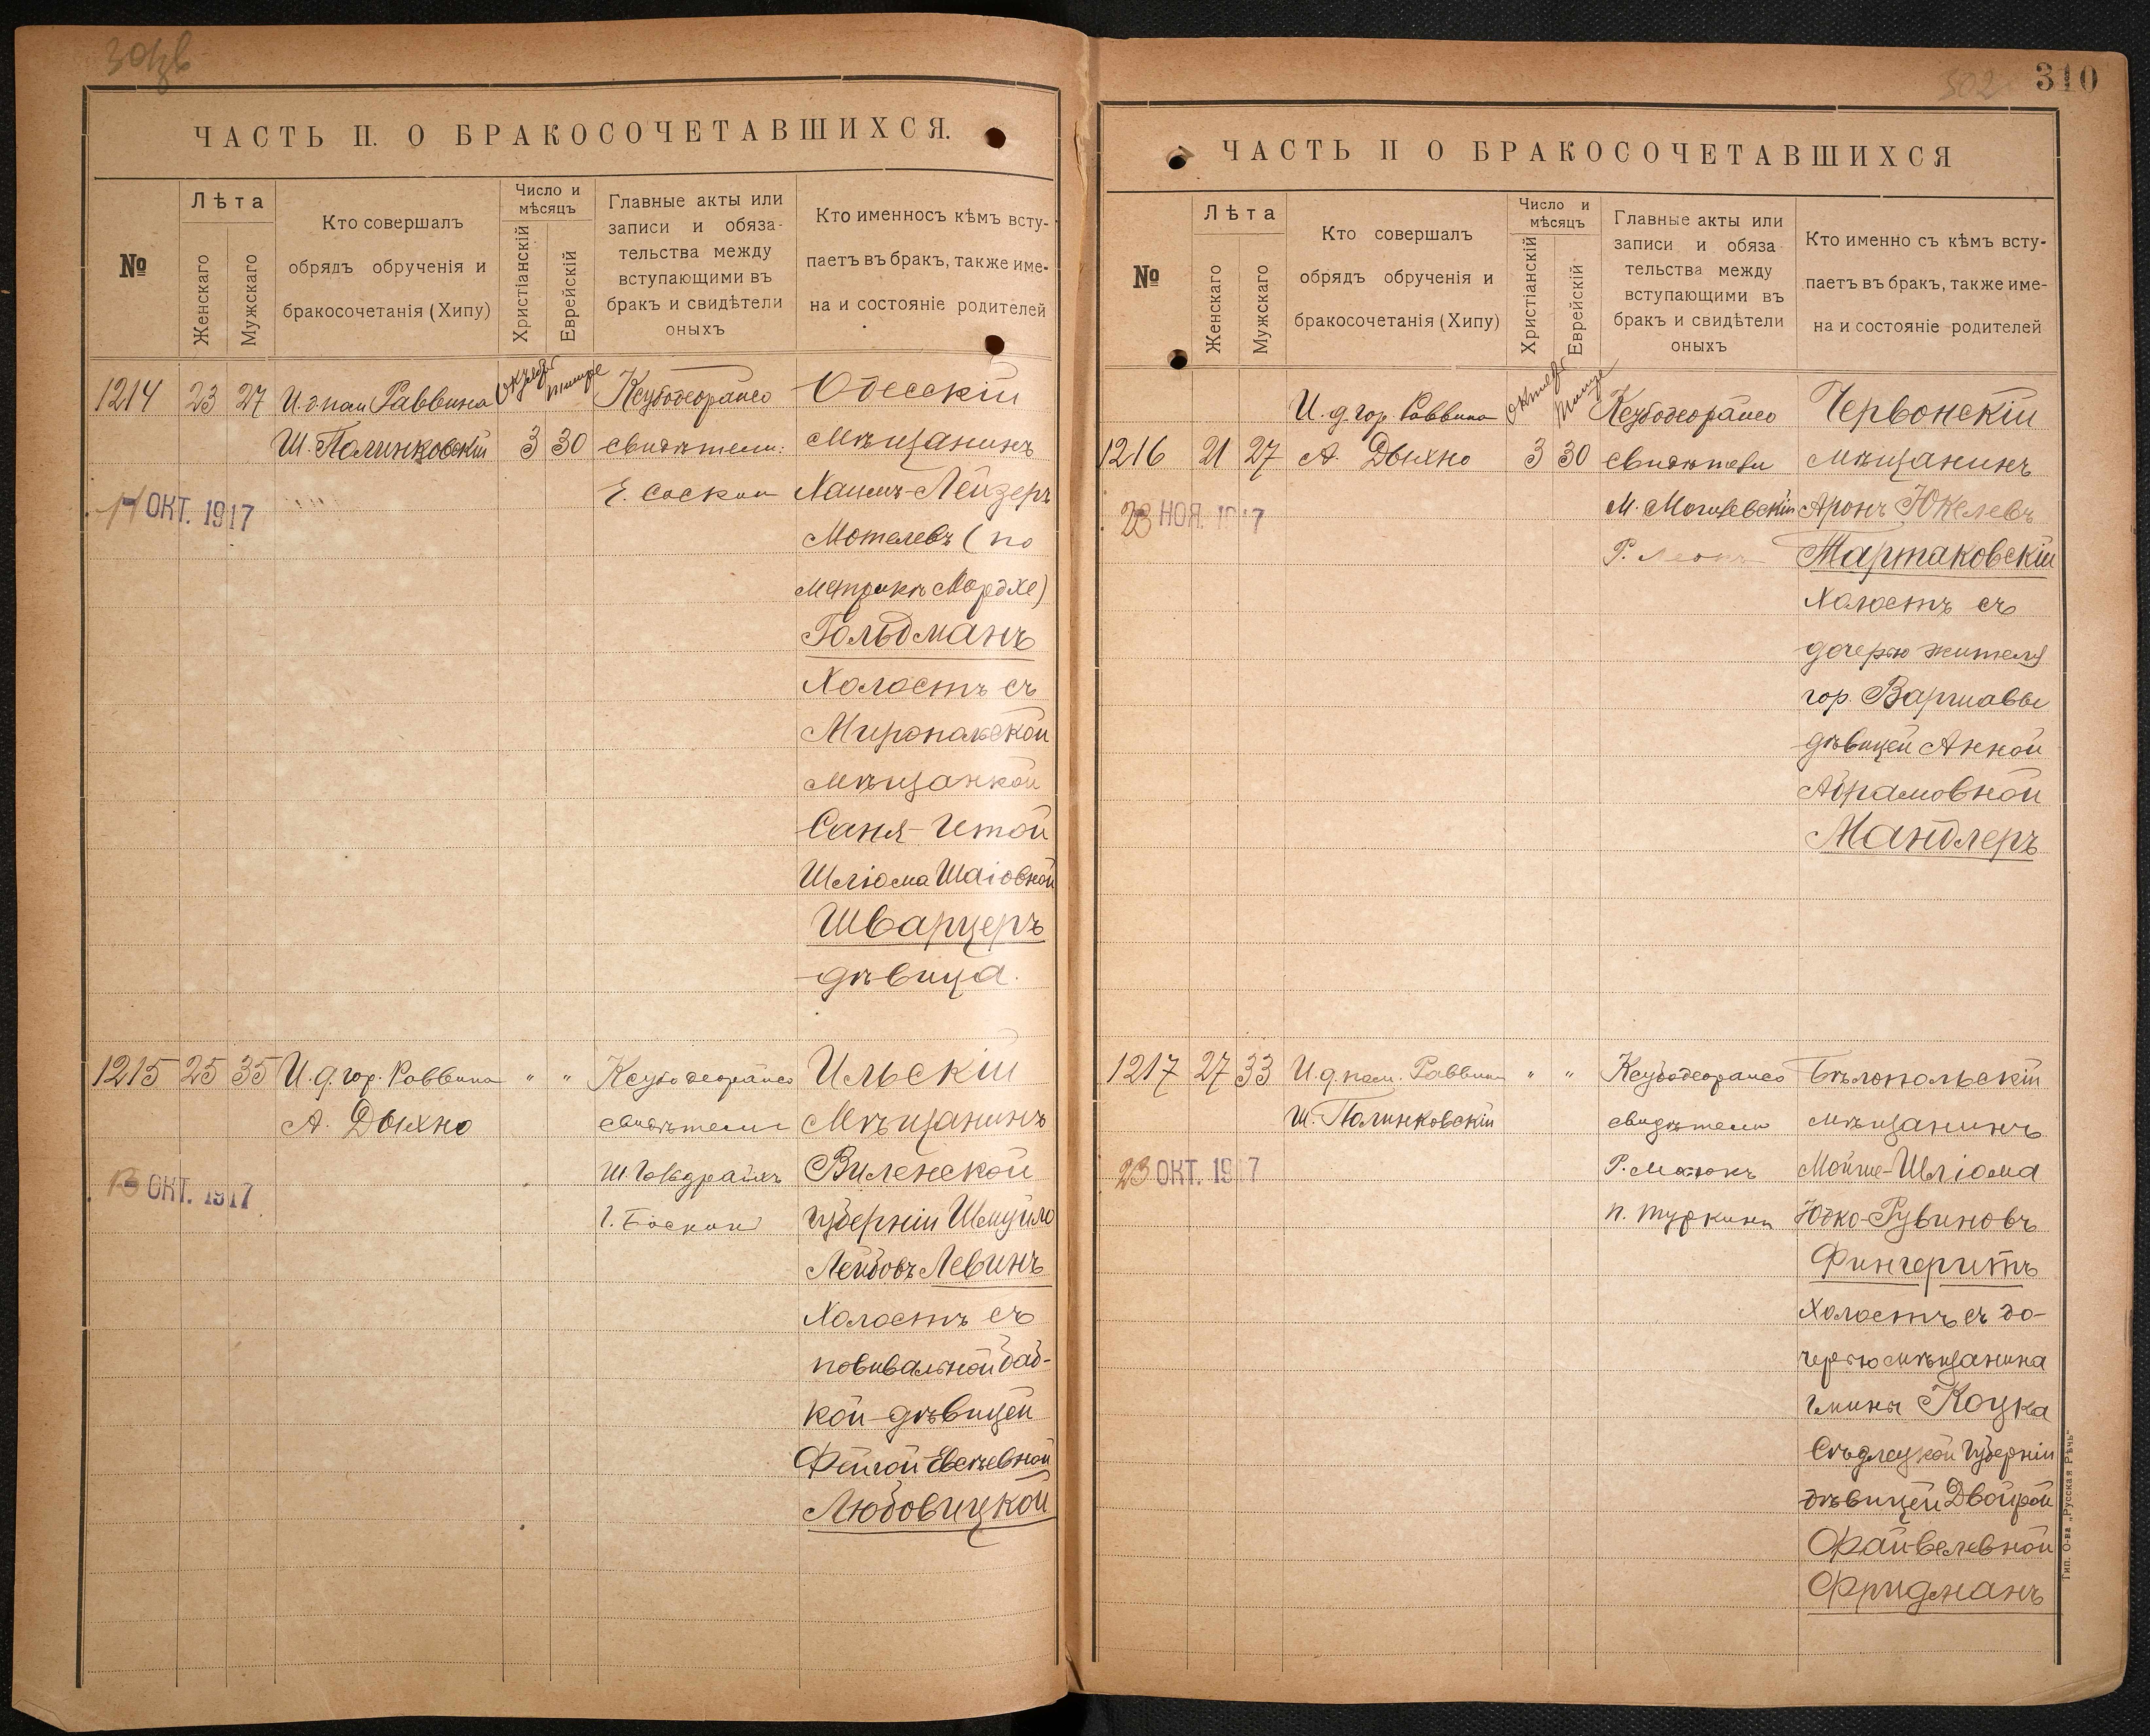 ЧАСТЬ II. О БРАКОСОЧЕТАВШИХСЯ.
№
Лѣта
Женскаго
Мужскаго
Кто совершалъ
обрядъ обрученія и
бракосочетанія (Хипу)
Число и
мѣсяцъ
Христіанскій
Еврейскій
Главные акты или
записи и обяза-
тельства между
вступающими въ
бракъ и свидѣтели
оныхъ
Кто именносъ кѣмъ всту-
паетъ въ бракъ, также име-
на и состояніе родителей
1214 23 27 И. д. пом Раввина
Ш. Полинковскій
3 30
свидѣтели:
Е. Соскин
11 ОКТ. 1917
Одесскій
мѣщанинъ
Хаимъ-Лейзеръ
Мотелевъ (по
метрикѣ Мордхе)
Гольдманъ
Холостъ съ
Миропольской
мѣщанкой
Саня-Итой
Шліома Шаіовной
Шварцеръ
дѣвица.
1215 25 35 И. д. гор. Раввина
А. Дыхно
" "
свидѣтели
13 ОКТ. 1917
Ильскій
Мѣщанинъ
Виленской
губерніи Шмуйло
Лейбовъ Левинъ
Холостъ съ
повивальной баб-
кой-дѣвицей
Фейгой Евсѣевной
Любовицкой
310
302
ЧАСТЬ II О БРАКОСОЧЕТАВШИХСЯ
№
Лѣта
Женскаго
Мужскаго
Кто совершалъ
обрядъ обрученія и
бракосочетанія (Хипу)
Число и
мѣсяцъ
Христіанскій
Еврейскій
Главные акты или
записи и обяза
тельства между
вступающими въ
бракъ и свидѣтели
оныхъ
Кто именно съ кѣмъ всту-
паетъ въ бракъ, также име-
на и состояніе родителей
И. д. гор. Раввина
1216 21 27 А. Дыхно
3 30
свидѣтели
М. Могилевскій
23 НОЯ. 1917
Червонскій
мѣщанинъ
Аронъ Юкелевъ
Тартаковскій
Холостъ съ
дочерью жителя
гор. Варшавы
дѣвицей Анной
Абрамовной
Мандлеръ
1217 27 33 И. д. пом. Раввина
Ш. Полинковскій
" "
свидѣтели
П. Туркинъ
23 ОКТ. 1917
Бѣлопольскій
мѣщанинъ
Мойше-Шліома
Юдко-Рувиновъ
Фингеритъ
Холостъ съ до-
черью мѣщанина
гмины Коцка
Сѣдлецкой губерніи
дѣвицей Двойрой
Файвелевной
Фридманъ
Тип. О-ва „Русская Рѣчь"